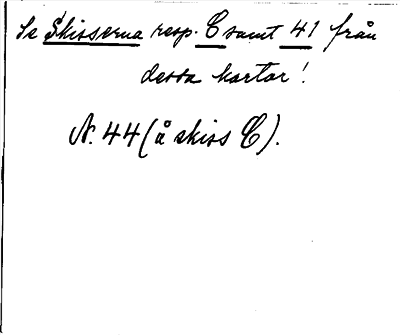 Se Skisserna resp. C samt 41 från
dessa kartor!
N. 44 (å skiss C).